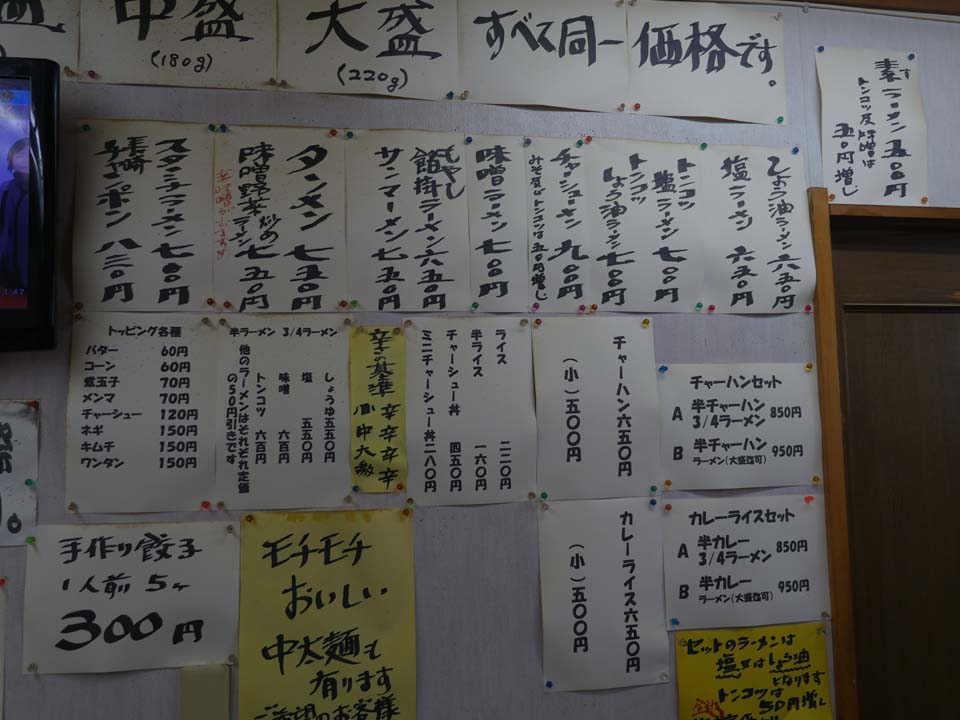 中盛
(180g)
大盛
(220g)
すべて同一価格です。
素ラーメン 五五〇円
トンコツ及味噌は
五〇円増し
しょう油ラーメン 六五〇円
塩ラーメン 六五〇円
トンコツ
塩ラーメン 七〇〇円
トンコツ
しょう油ラーメン 七〇〇円
チャーシューメン 九〇〇円
みそ及びトンコツは五〇円増し
味噌ラーメン 七〇〇円
もやし
餡掛ラーメン 六五〇円
サンマーメン 七五〇円
タンメン 七五〇円
味噌野菜炒め
ラーメン 七五〇円
スタミナラーメン 七〇〇円
長崎
チャンポン 八三〇円
トッピング各種
バター 60円
コーン 60円
煮玉子 70円
メンマ 70円
チャーシュー 120円
ネギ 150円
キムチ 150円
ワンタン 150円
半ラーメン 3/4ラーメン
しょうゆ 五五〇円
塩 五五〇円
味噌 六百円
トンコツ 六百円
他のラーメンはそれぞれ定価
の50円引きです
辛さの基準
小辛
中辛
大辛
激辛
ライス 二二〇円
半ライス 一六〇円
チャーシュー丼 四五〇円
ミニチャーシュー丼 二八〇円
チャーハン 六五〇円
(小) 五〇〇円
チャーハンセット
A 半チャーハン
3/4ラーメン 850円
B 半チャーハン
ラーメン(大盛迄可) 950円
カレーライス 六五〇円
(小) 五〇〇円
カレーライスセット
A 半カレー
3/4ラーメン 850円
B 半カレー
ラーメン(大盛迄可) 950円
手作り餃子
1人前 5ヶ
300円
モチモチ
おいしい
中太麺も
有ります
ご希望のお客様
セットのラーメンは
塩又はしょう油
となります
トンコツは
50円増し